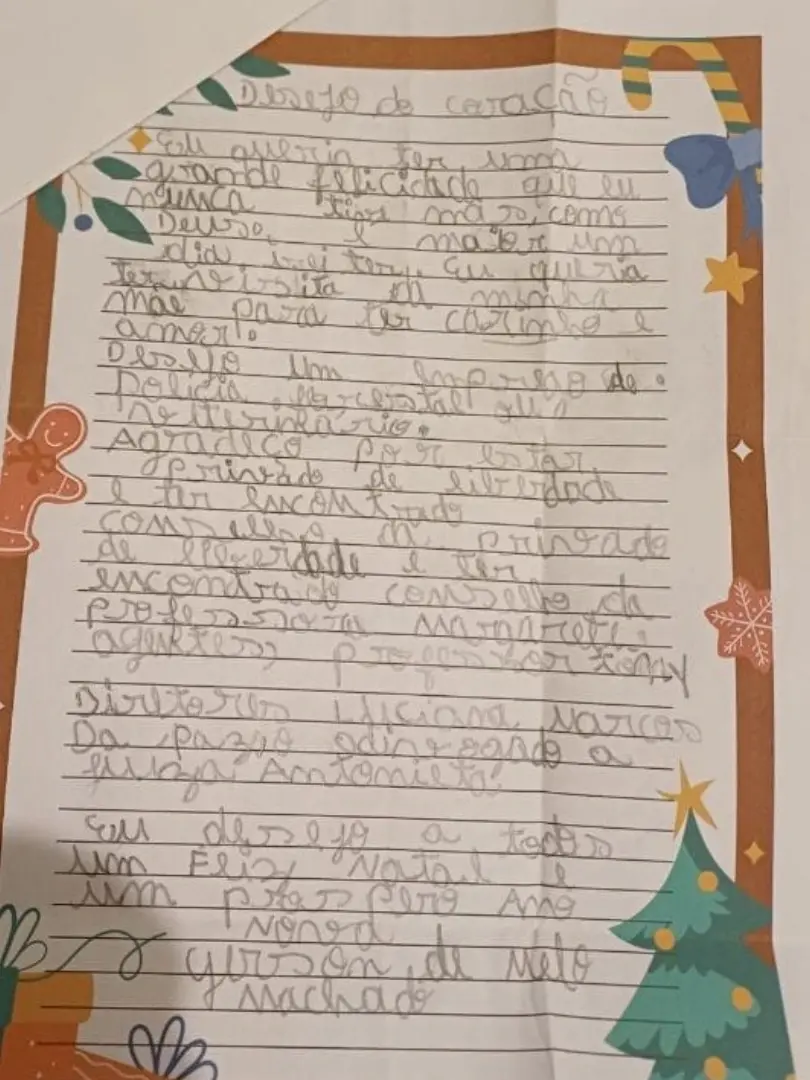 Desejo do coração
Eu queria ter uma
grande felicidade que eu
nunca tive mas, como
Deus, é maior um
dia, vei ter. Eu queria
ter visita da minha
mãe para ter carinho e
amor.
Desejo um emprego de
Policia, ou
Agradeço por estar
privado de liberdade
e ter encontrado
da privado
de liberdade e ter
encontrado conselho da
professora Margareti,
agentes, professor tony
Diretores Luciana Marcos
Da a
Antonieta!
Eu desejo a todos
um Feliz Natal e
um prospero Ano
Novo
gerson de Melo
Machado